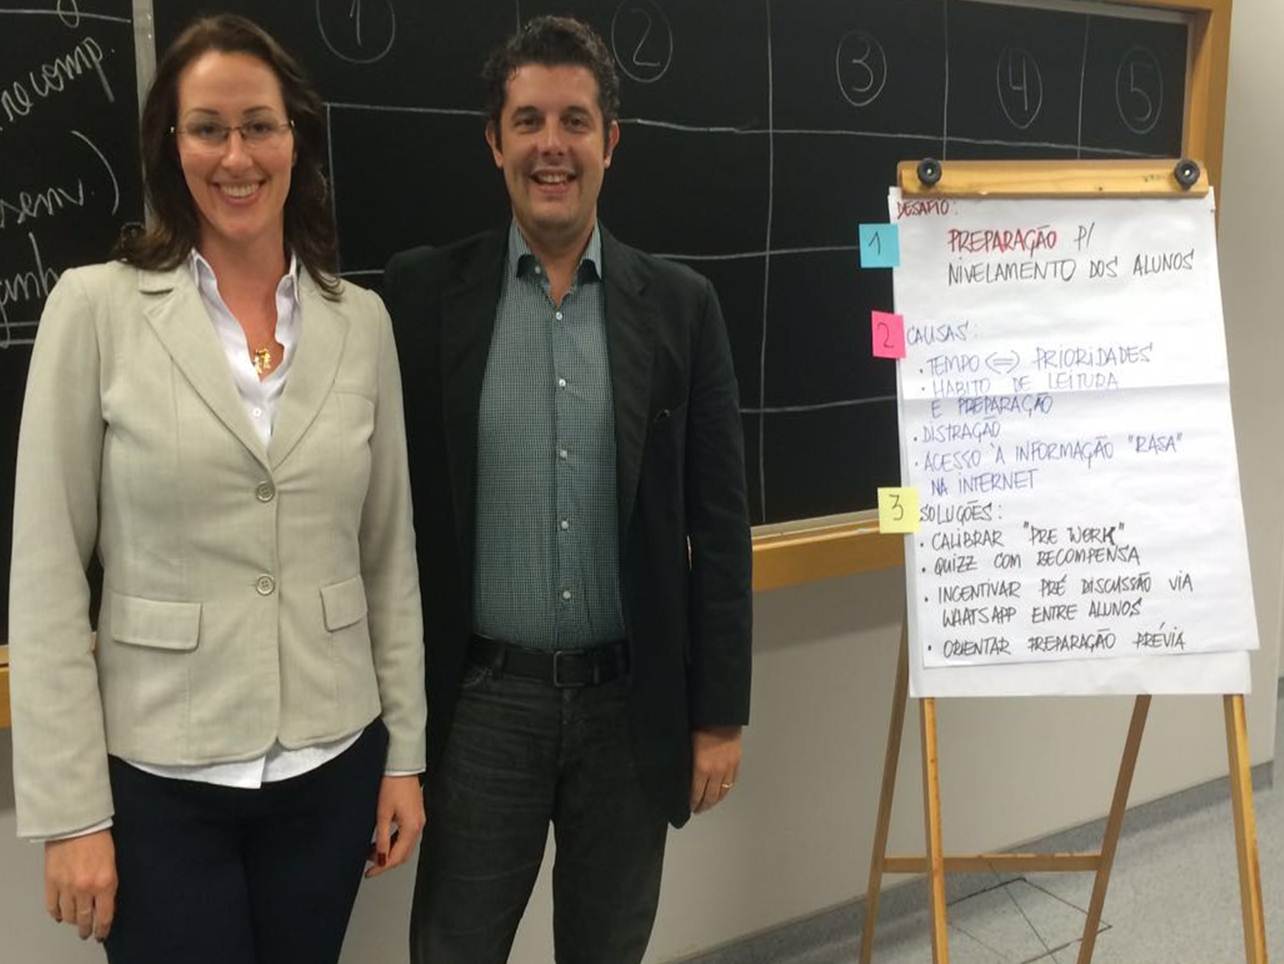 recomp.
1
2
3
4
5
DESAFIO:
1
PREPARAÇÃO P/
NIVELAMENTO DOS ALUNOS
2
CAUSAS:
• TEMPO <=> PRIORIDADES
• HABITO DE LEITURA
E PREPARAÇÃO
• DISTRAÇÃO
• ACESSO À INFORMAÇÃO "RASA"
NA INTERNET
3
SOLUÇÕES:
• CALIBRAR "PRE WORK"
• QUIZZ COM RECOMPENSA
• INCENTIVAR PRÉ DISCUSSÃO VIA
WHATSAPP ENTRE ALUNOS
• ORIENTAR PREPARAÇÃO PRÉVIA